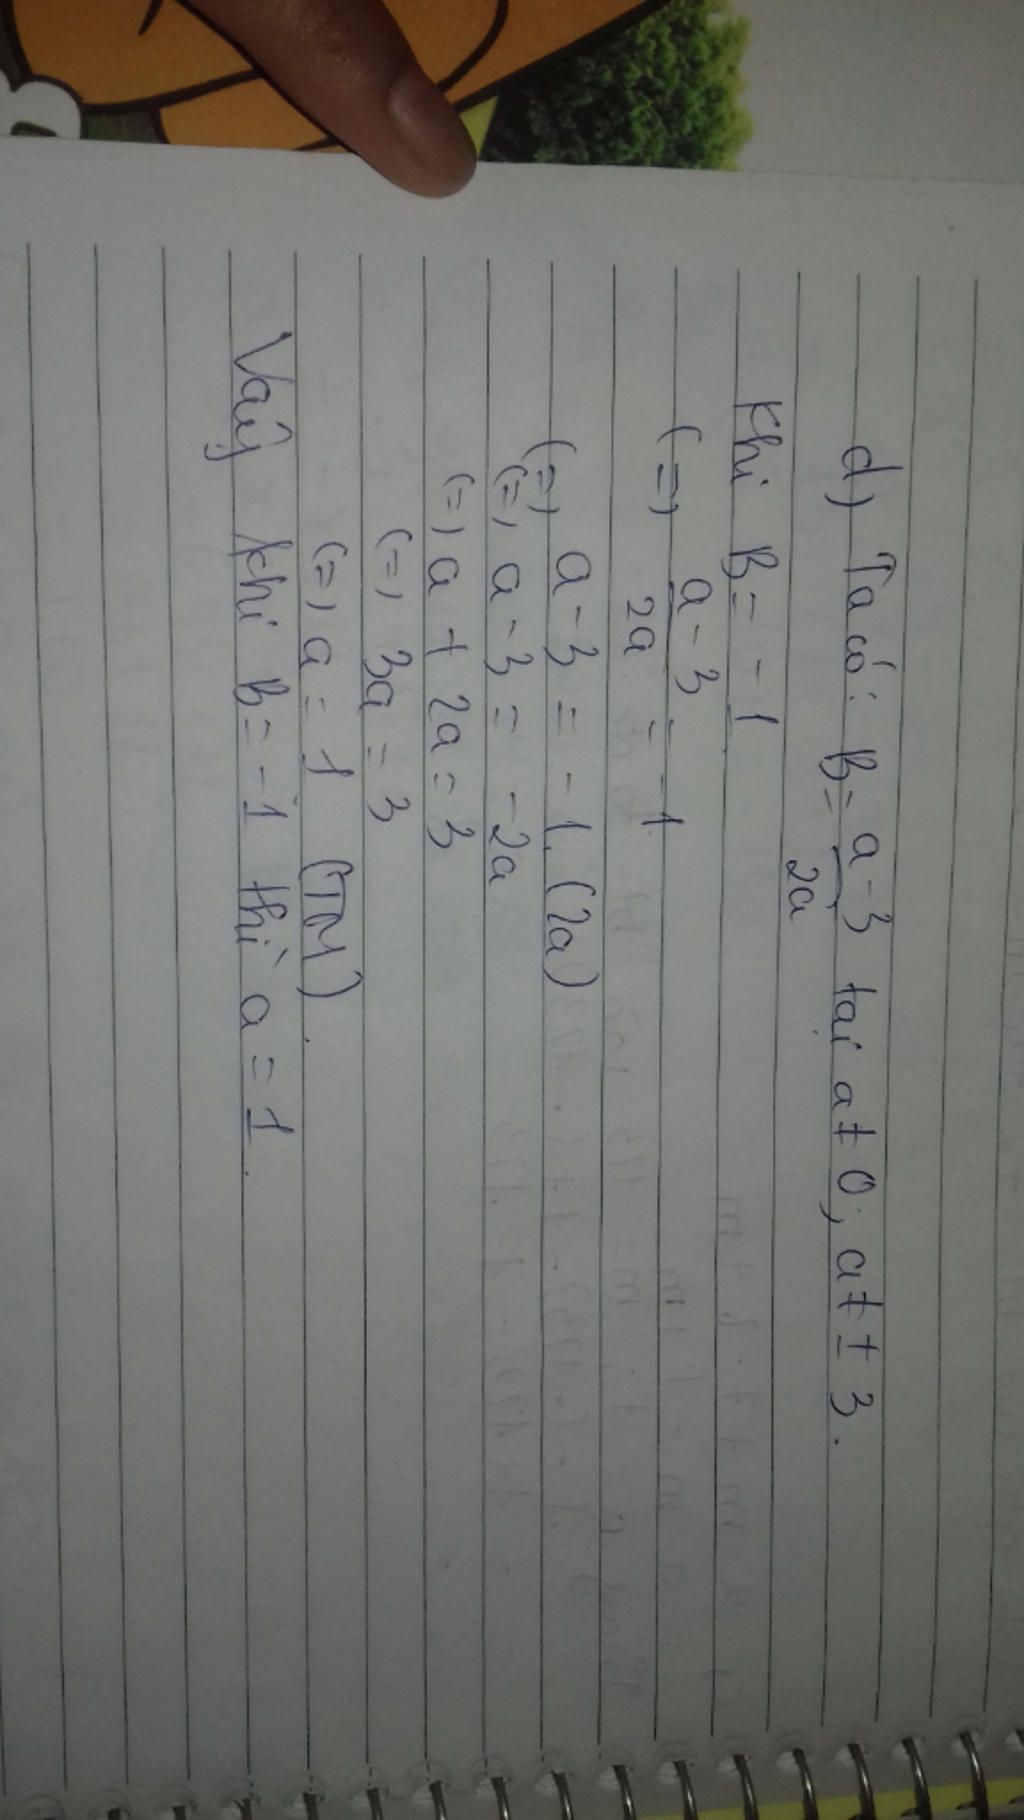 d) Ta có: B = a - 3 tại a ≠ 0; a ≠ ± 3.
2a
Khi B = - 1
(=) a - 3 = - 1
2a
(=) a - 3 = - 1. (2a)
(=) a - 3 = - 2a
(=) a + 2a = 3
(=) 3a = 3
(=) a = 1 (TM).
Vậy khi B = - 1 thì a = 1.